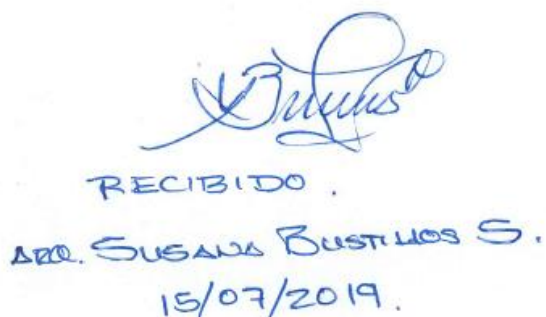 RECIBIDO.
ARQ. SUSANA BUSTILLOS S.
15/07/2019.